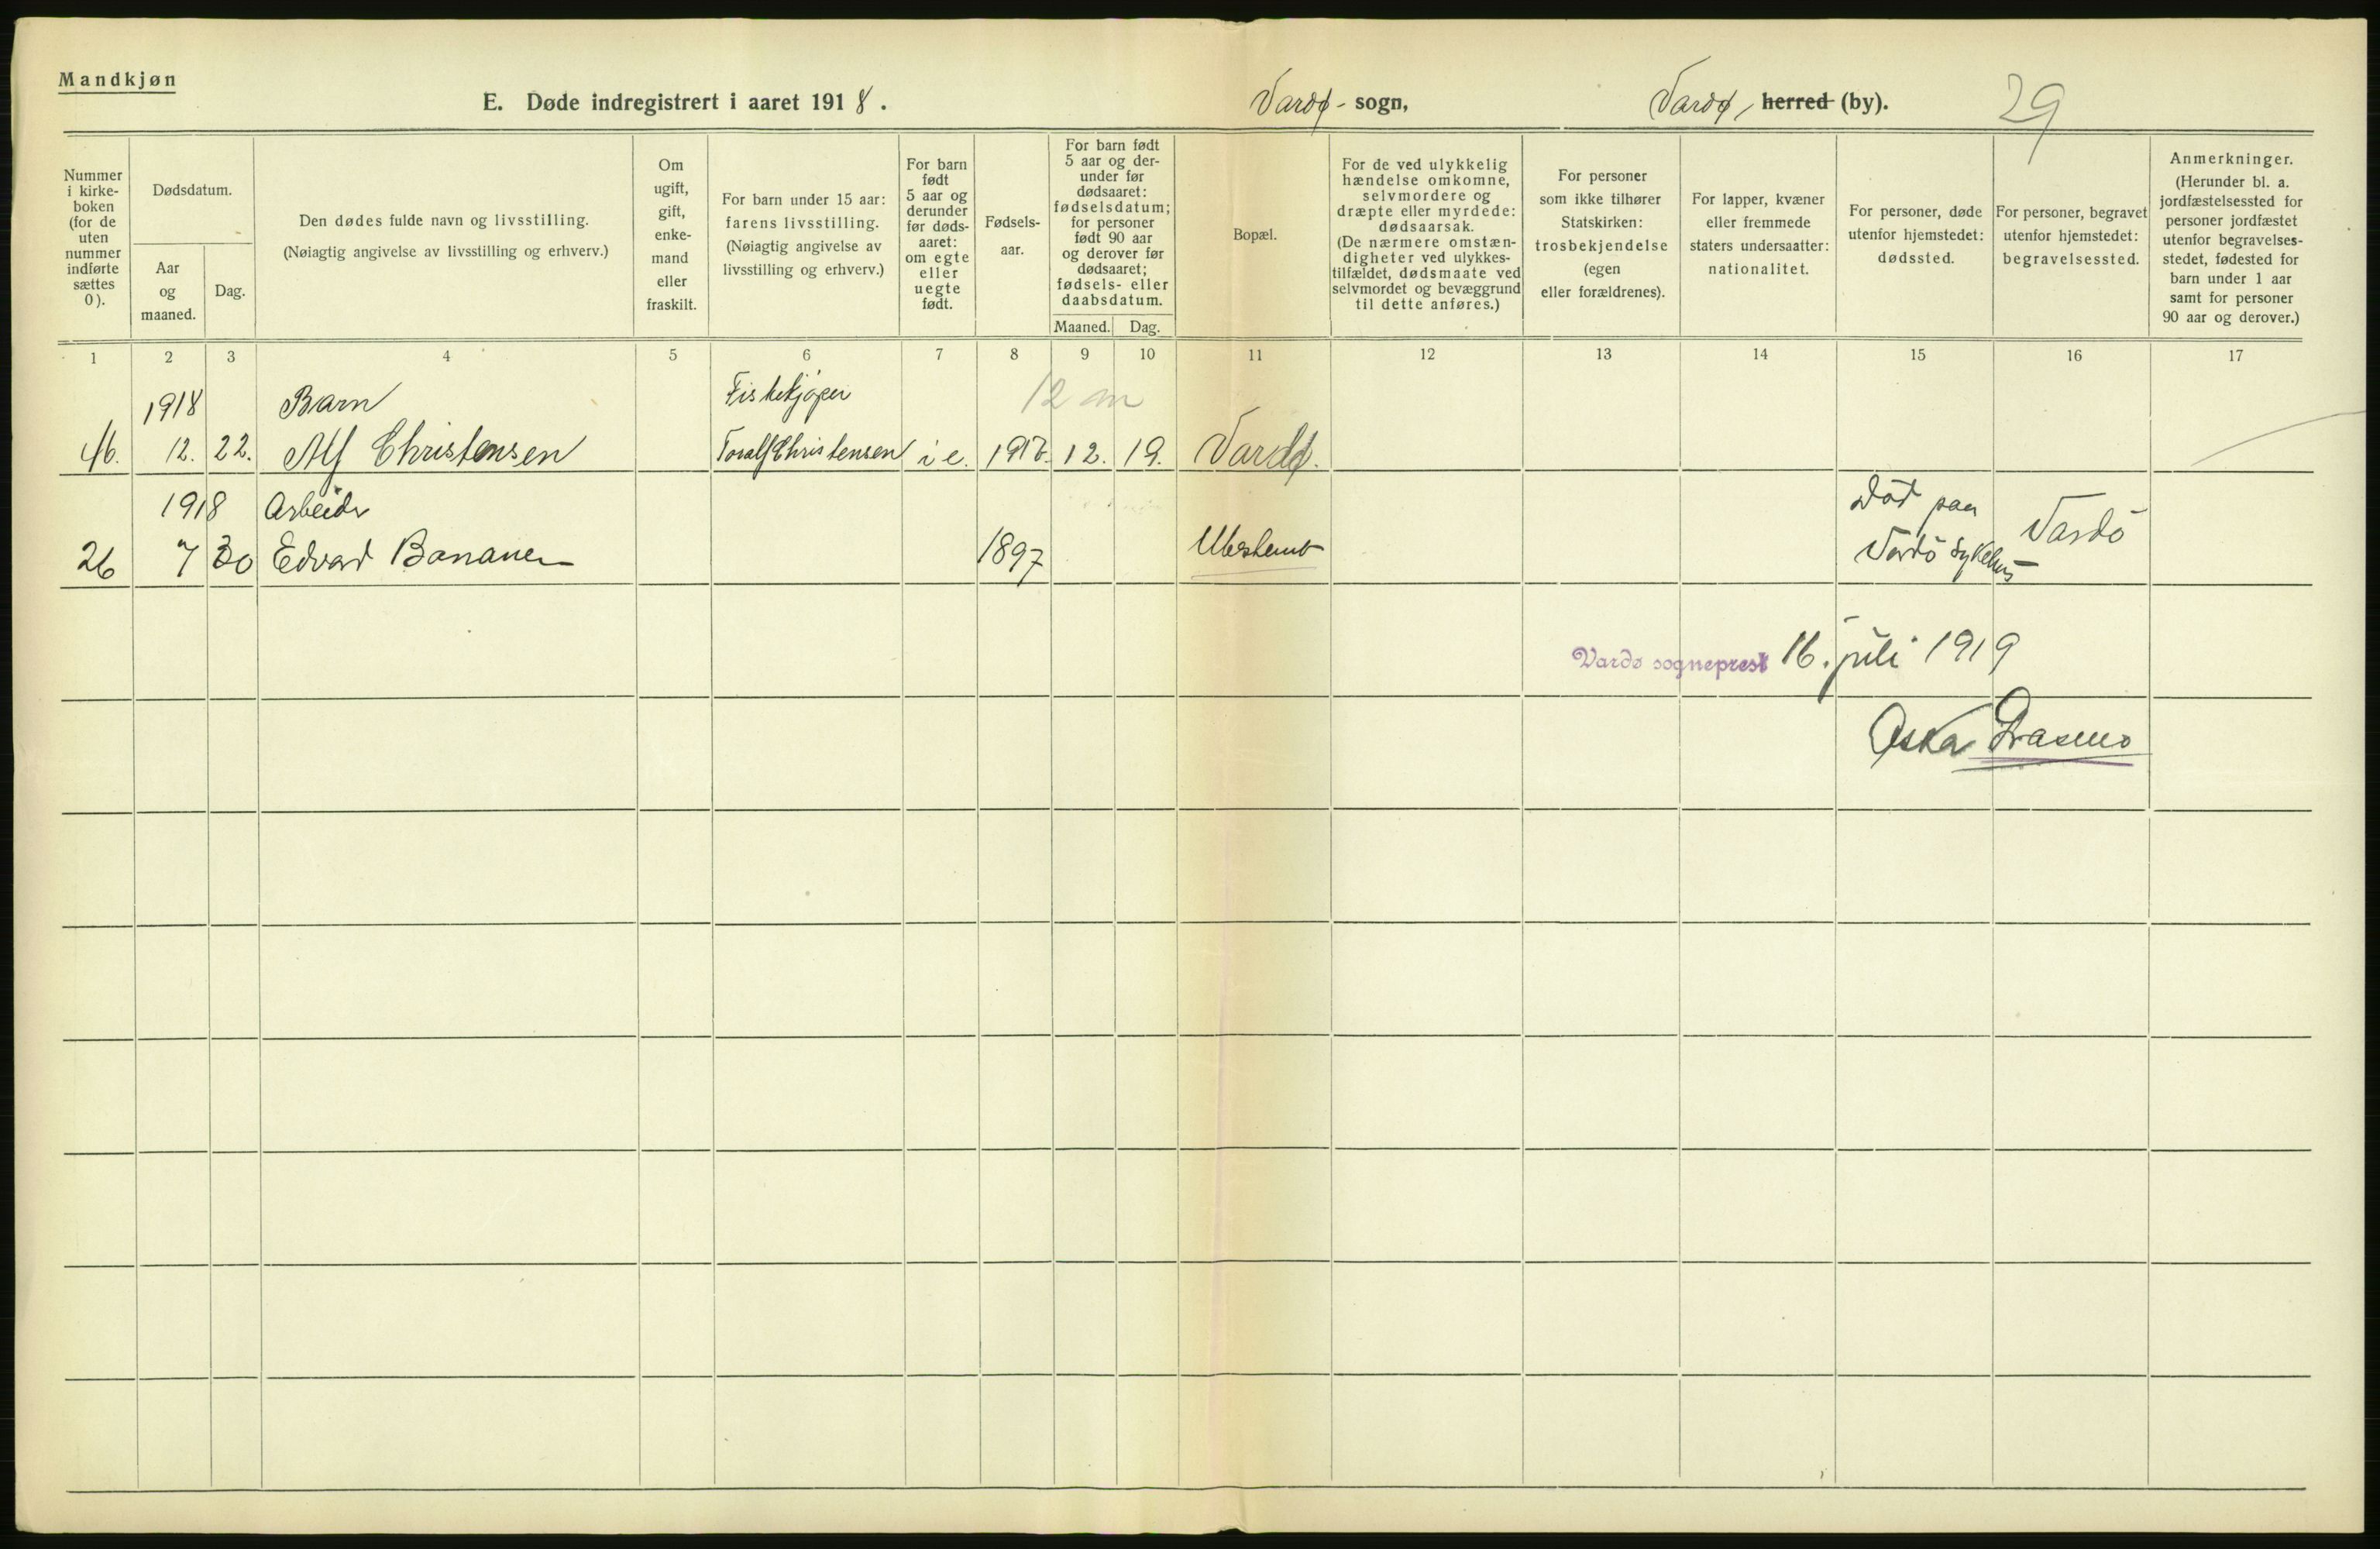 Mandkjøn
E. Døde indregistrert i aaret 1918.
Vardø - sogn, Vardø, herred (by). 29
Nummer i kirke-boken (for de uten nummer indførte sættes 0).
Dødsdatum.
Aar og maaned.
Dag.
Den dødes fulde navn og livsstilling.
(Nøiagtig angivelse av livsstilling og erhverv.)
Om ugift, gift, enke-mand eller fraskilt.
For barn under 15 aar: farens livsstilling.
(Nøiagtig angivelse av livsstilling og erhverv.)
For barn født 5 aar og derunder før døds-aaret: om egte eller uegte født.
Fødsels-aar.
For barn født 5 aar og der-under før dødsaaret: fødselsdatum; for personer født 90 aar og derover før dødsaaret; fødsels- eller daabsdatum.
Maaned. Dag.
Bopæl.
For de ved ulykkelig hændelse omkomne, selvmordere og dræpte eller myrdede: dødsaarsak.
(De nærmere omstæn-digheter ved ulykkes-tilfældet, dødsmaate ved selvmordet og bevæggrund til dette anføres.)
For personer som ikke tilhører Statskirken: trosbekjendelse (egen eller forældrenes).
For lapper, kvæner eller fremmede staters undersaatter: nationalitet.
For personer, døde utenfor hjemstedet: dødssted.
For personer, begravet utenfor hjemstedet: begravelsessted.
Anmerkninger.
(Herunder bl. a. jordfæstelsessted for personer jordfæstet utenfor begravelses-stedet, fødested for barn under 1 aar samt for personer 90 aar og derover.)
1 2 3 4 5 6 7 8 9 10 11 12 13 14 15 16 17
1918 Barn Fiskekjøper 12 m
46. 12. 22. Alf Christensen Toralf Christensen i e. 1917. 12. 19. Vardø.
1918 Arbeider Död paa
26 7 30 Edvard 1897 Vardö Sykehus Vardö
Vardø sogneprest 16. juli 1919
Oskar